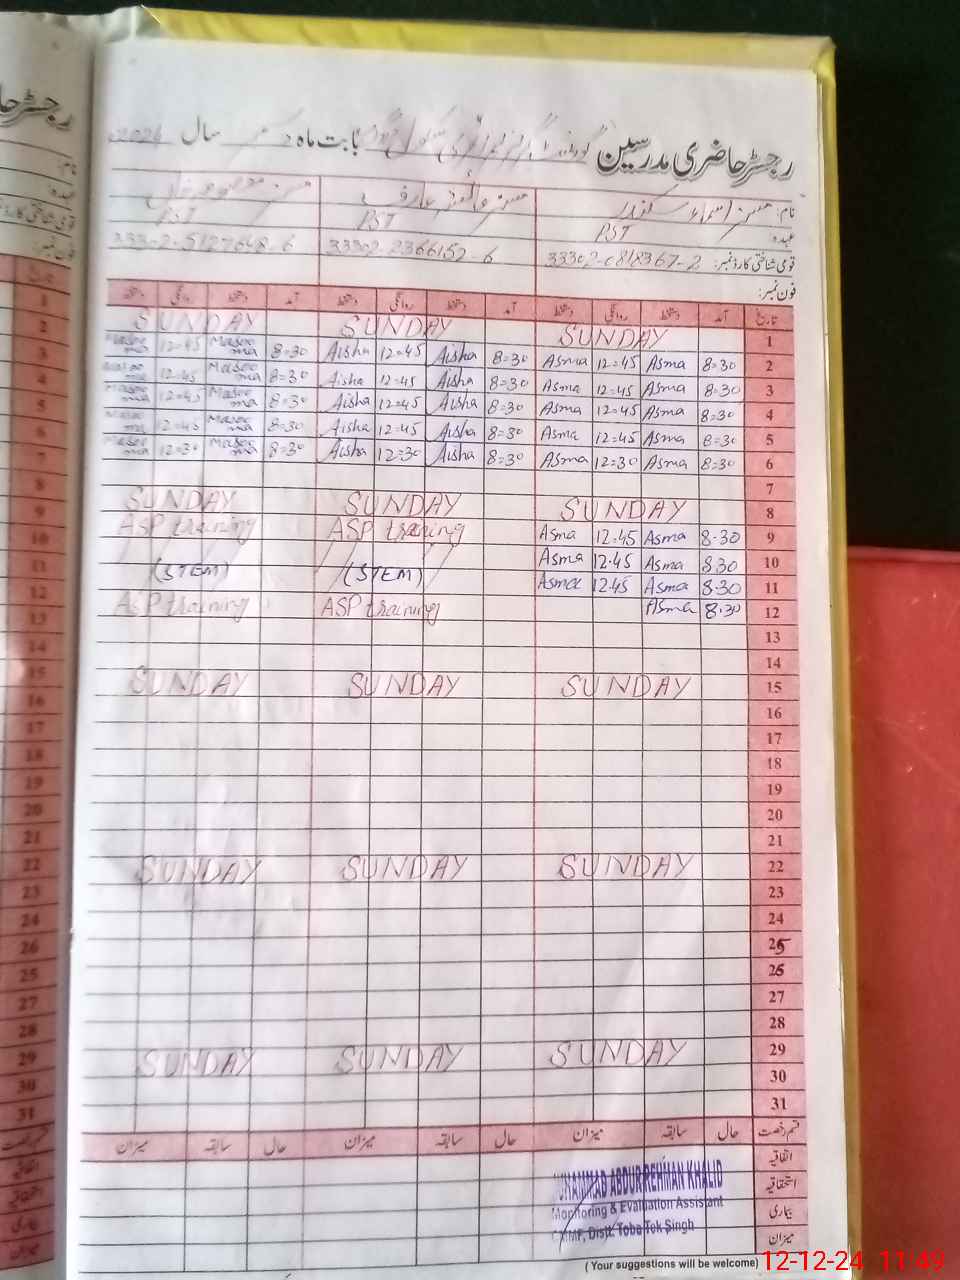 رجسٹر حاضری مدرسین گورنمنٹ گرلز پرائمری سکول بابت ماہ دسمبر سال 2024
نام: مسز اسماء سکندر مسز عائشہ عارف مسز معصومہ
عہدہ: PST PST PST
قومی شناختی کارڈ نمبر: 33302-0818367-2 33302-2366152-6 33302-5127648-6
فون نمبر:
تاریخ آمد دستخط روانگی دستخط آمد دستخط روانگی دستخط آمد دستخط روانگی دستخط
1 SUNDAY SUNDAY SUNDAY
2 8=30 Asma 12=45 Asma 8=30 Aisha 12=45 Aisha 8=30 Masooma 12=45 Masooma
3 8=30 Asma 12=45 Asma 8=30 Aisha 12=45 Aisha 8=30 Masooma 12=45 Masooma
4 8=30 Asma 12=45 Asma 8=30 Aisha 12=45 Aisha 8=30 Masooma 12=45 Masooma
5 8=30 Asma 12=45 Asma 8=30 Aisha 12=45 Aisha 8=30 Masooma 12=45 Masooma
6 8=30 Asma 12=30 Asma 8=30 Aisha 12=30 Aisha 8=30 Masooma 12=30 Masooma
7
8 SUNDAY SUNDAY SUNDAY
9 8.30 Asma 12.45 Asma ASP training ASP training
10 8.30 Asma 12.45 Asma
11 8.30 Asma 12.45 Asma (STEM) (STEM)
12 8.30 Asma ASP training ASP training
13
14
15 SUNDAY SUNDAY SUNDAY
16
17
18
19
20
21
22 SUNDAY SUNDAY SUNDAY
23
24
25
26
27
28
29 SUNDAY SUNDAY SUNDAY
30
31
قسم رخصت حال سابقہ میزان حال سابقہ میزان حال سابقہ میزان
اتفاقیہ
استحقاقیہ
بیماری
میزان
MUHAMMAD ABDUR REHMAN KHALID
Monitoring & Evaluation Assistant
Distt. Toba Tek Singh
( Your suggestions will be welcome)
12-12-24 11:49